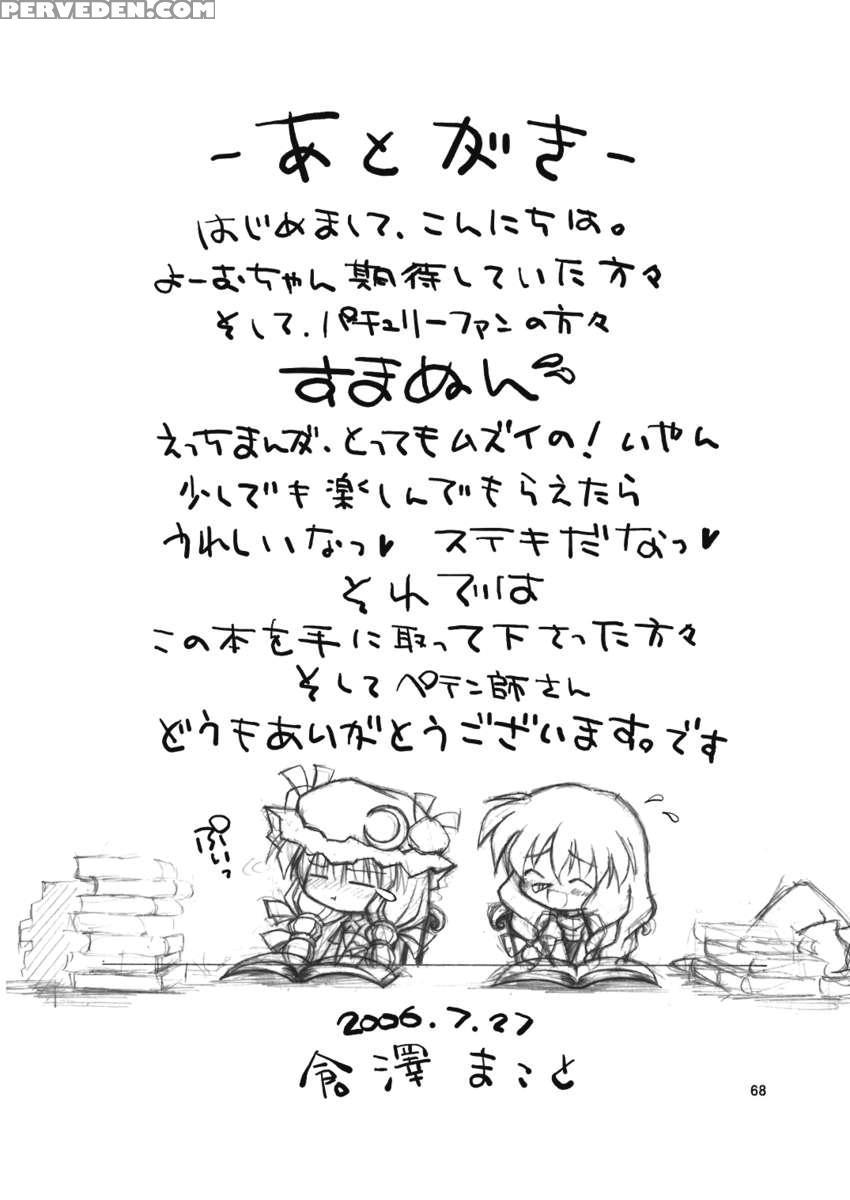 PERVEDEN.COM
-あとがき-
はじめまして、こんにちは。
よーむちゃん期待していた方々
そして、パチュリーファンの方々
すまぬん
えっちまんが、とってもムズイの！いやん
少しでも楽しんでもらえたら
うれしいなっ♥ ステキだなっ♥
それでは
この本を手に取って下さった方々
そしてペテン師さん
どうもありがとうございます。です
ぷいっ
2006.7.27
倉澤 まこと
68